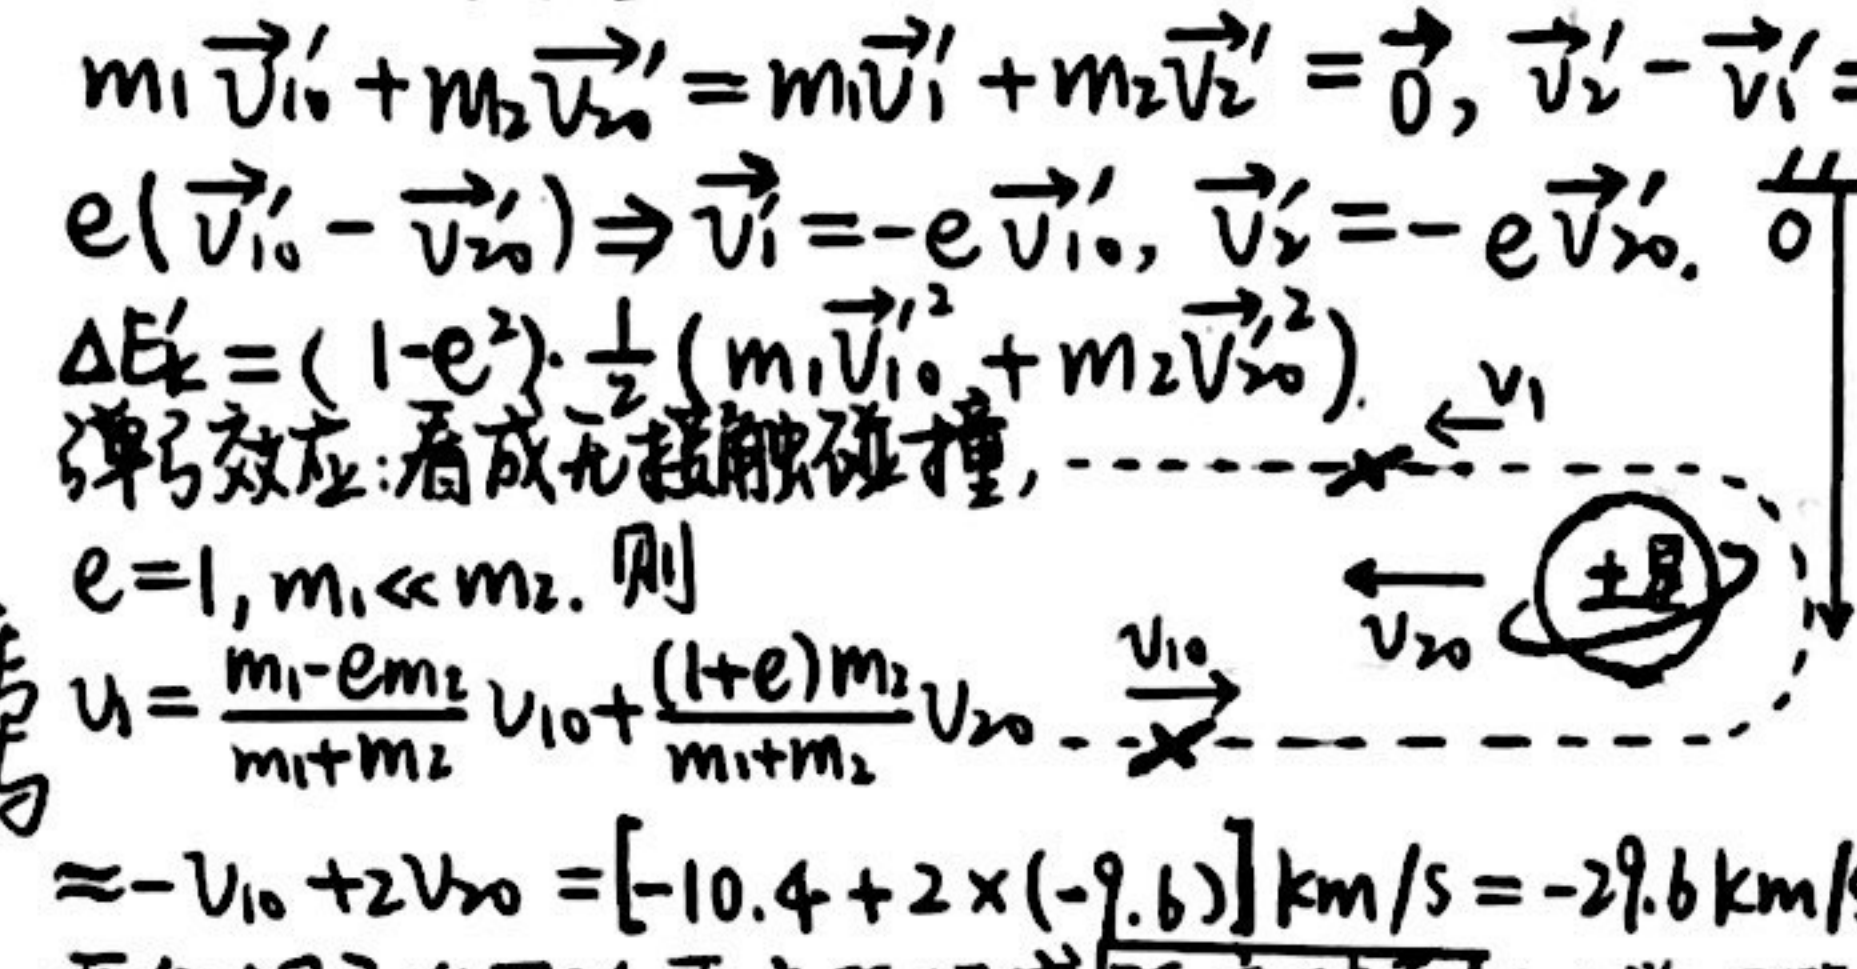 m₁v⃗₁₀′ + m₂v⃗₂₀′ = m₁v⃗₁′ + m₂v⃗₂′ = 0⃗, v⃗₂′ - v⃗₁′ =
e(v⃗₁₀′ - v⃗₂₀′) ⇒ v⃗₁′ = -e v⃗₁₀′, v⃗₂′ = -e v⃗₂₀′.
0
ΔEₖ′ = (1-e²)·½(m₁v⃗₁₀′² + m₂v⃗₂₀′²).
v₁
弹弓效应:看成无接触碰撞,
土星
e=1, m₁≪m₂. 则
v₂₀
v₁₀
v₁ = (m₁-em₂)/(m₁+m₂) v₁₀ + ((1+e)m₂)/(m₁+m₂) v₂₀
≈ -v₁₀ + 2v₂₀ = [-10.4 + 2×(-9.6)] km/s = -29.6 km/s